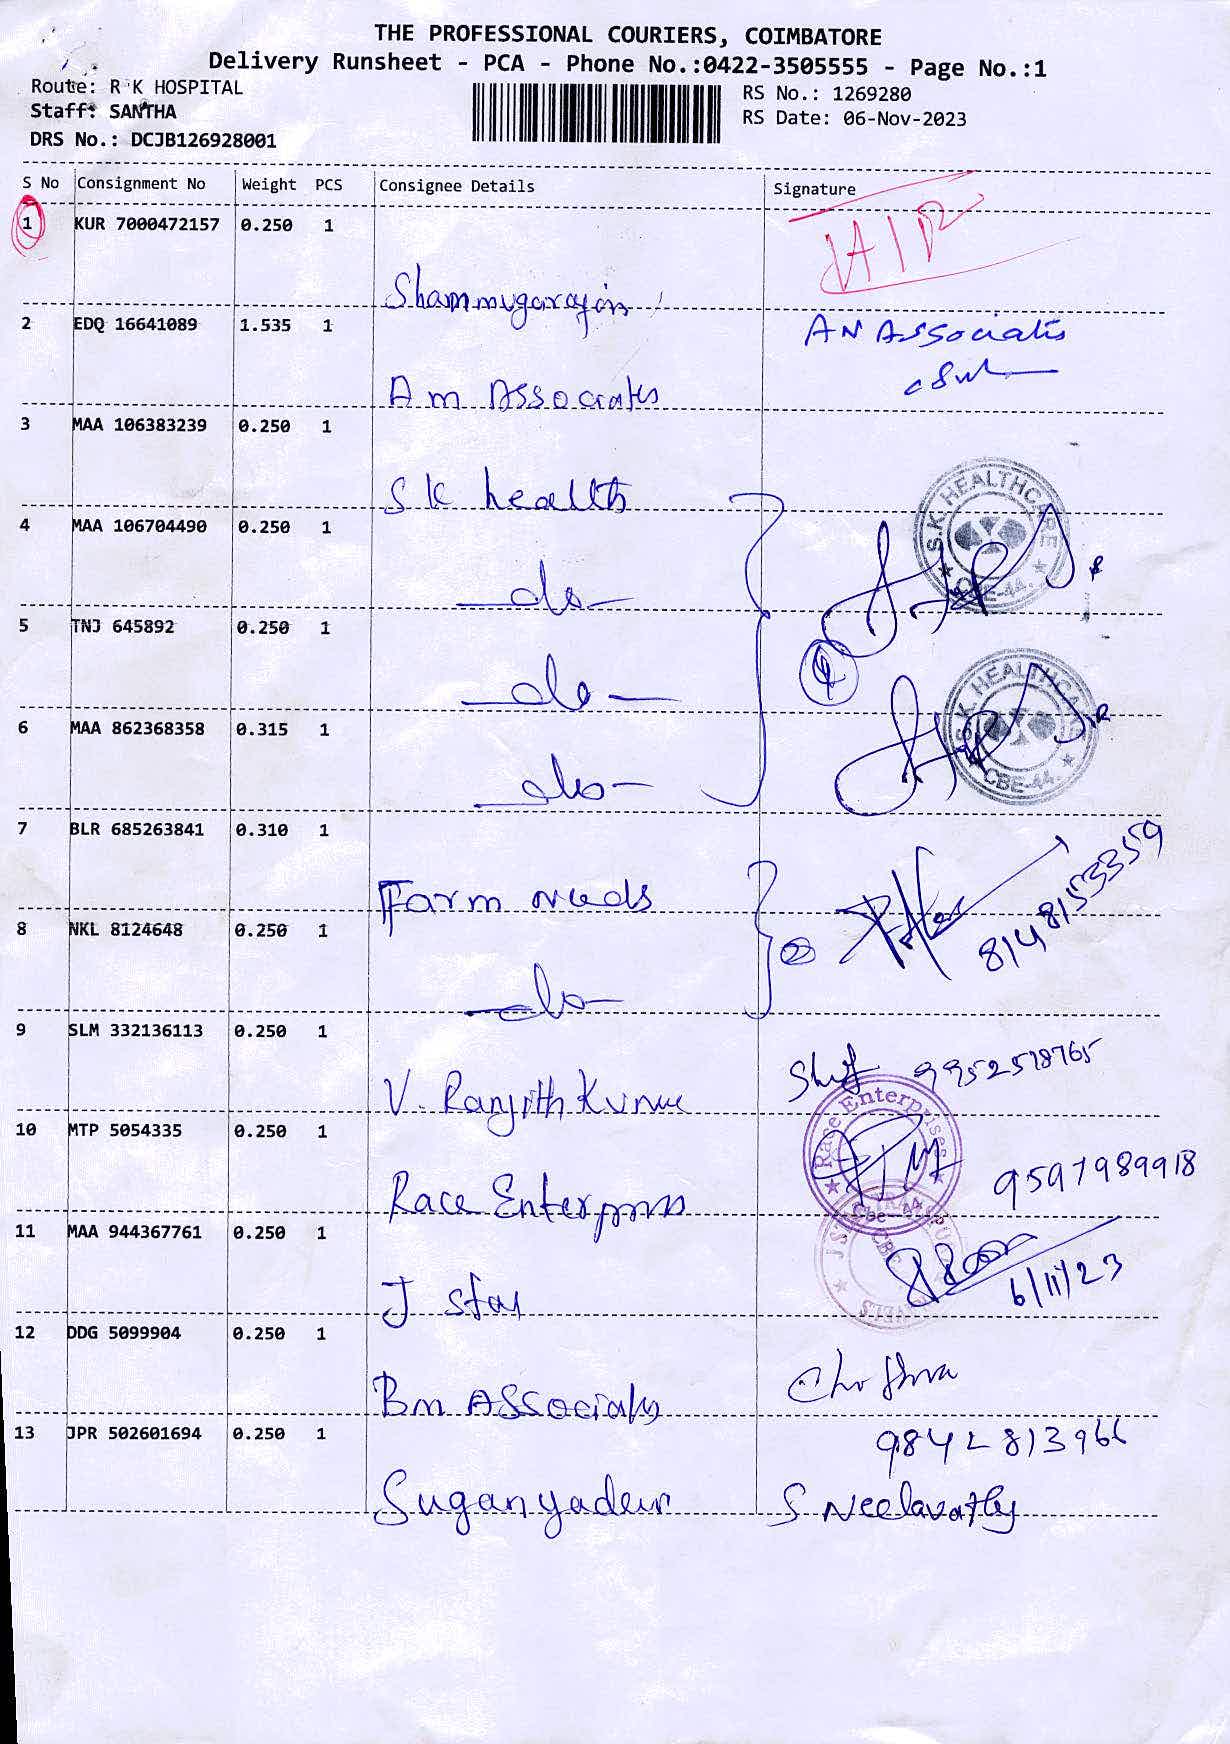 THE PROFESSIONAL COURIERS, COIMBATORE
Delivery Runsheet - PCA - Phone No.:0422-3505555 - Page No.:1
Route: R K HOSPITAL
Staff: SANTHA
DRS No.: DCJB126928001
RS No.: 1269280
RS Date: 06-Nov-2023
S No Consignment No Weight PCS Consignee Details Signature
1 KUR 7000472157 0.250 1
2 EDQ 16641089 1.535 1 AN Associates
Am Associates
3 MAA 106383239 0.250 1
S K health
S.K. HEALTHCARE CBE-44.
4 MAA 106704490 0.250 1
-do-
5 TNJ 645892 0.250 1
-do-
S.K. HEALTHCARE CBE-44.
6 MAA 862368358 0.315 1
-do-
7 BLR 685263841 0.310 1
Farm needs
8148153359
8 NKL 8124648 0.250 1
-do-
9 SLM 332136113 0.250 1
9952578765
V. Ranjith Kumar
Race Enterprises Cbe-44
10 MTP 5054335 0.250 1
9597989918
Race Enterprises
11 MAA 944367761 0.250 1
6/11/23
J star
12 DDG 5099904 0.250 1
Bm Associates
13 JPR 502601694 0.250 1 9842813966
Suganyadevi S Neelavathy